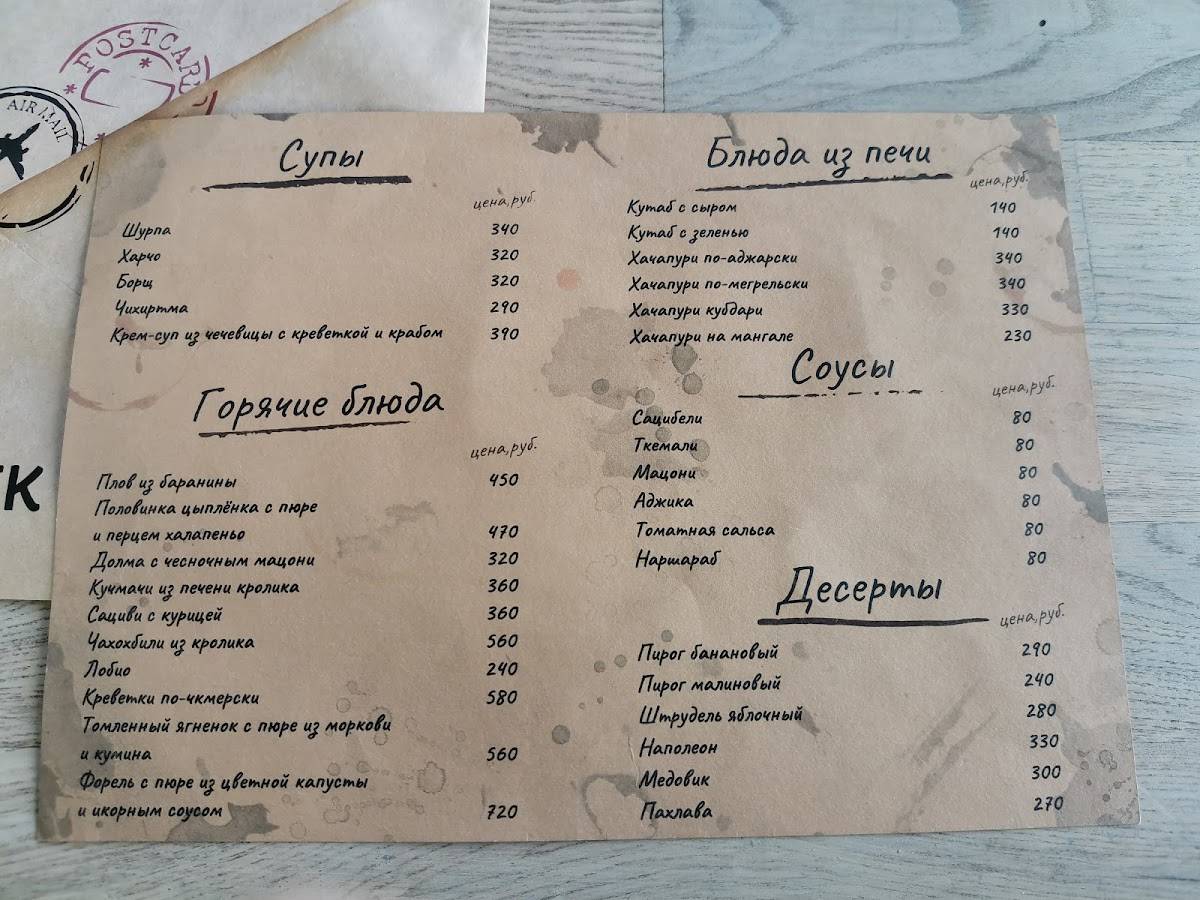 POSTCAR
AIR MAIL
Супы
цена,руб.
Шурпа 340
Харчо 320
Борщ 320
Чихиртма 290
Крем-суп из чечевицы с креветкой и крабом 390
Горячие блюда
цена,руб.
Плов из баранины 450
Половинка цыплёнка с пюре
и перцем халапеньо 470
Долма с чесночным мацони 320
Кучмачи из печени кролика 360
Сациви с курицей 360
Чахохбили из кролика 560
Лобио 240
Креветки по-чкмерски 580
Томленный ягненок с пюре из моркови
и кумина 560
Форель с пюре из цветной капусты
и икорным соусом 720
Блюда из печи
цена,руб.
Кутаб с сыром 140
Кутаб с зеленью 140
Хачапури по-аджарски 340
Хачапури по-мегрельски 340
Хачапури кубдари 330
Хачапури на мангале 230
Соусы
цена,руб.
Сацибели 80
Ткемали 80
Мацони 80
Аджика 80
Томатная сальса 80
Наршараб 80
Десерты
цена,руб.
Пирог банановый 290
Пирог малиновый 240
Штрудель яблочный 280
Наполеон 330
Медовик 300
Пахлава 270